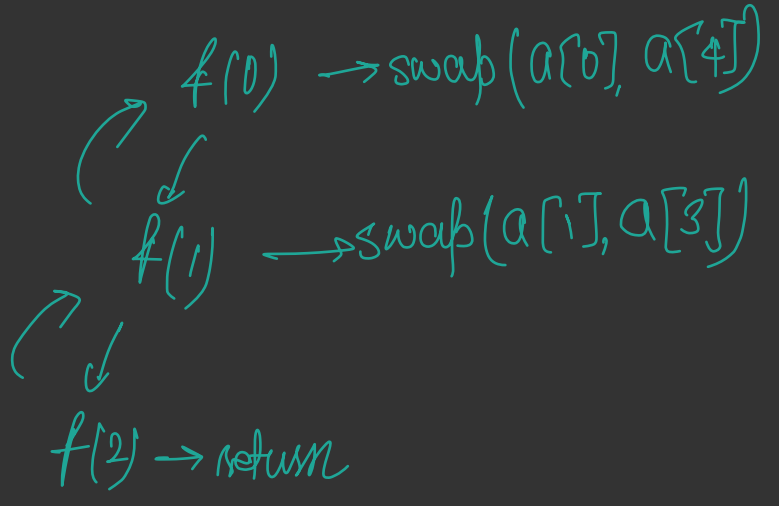 f(0) → swap(a[0], a[4])
f(1) → swap(a[1], a[3])
f(2) → return